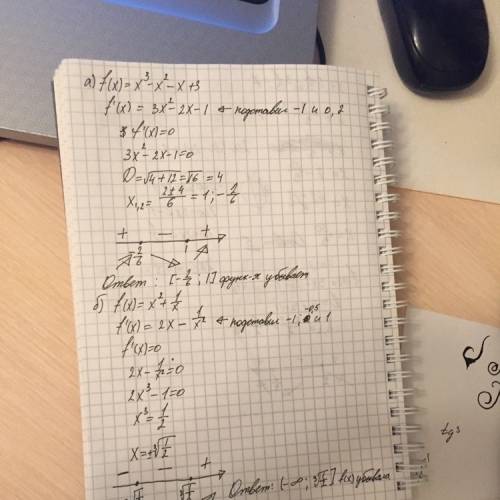 а) f(x) = x³ - x² - x + 3
f'(x) = 3x² - 2x - 1 ← подставил -1 и 0, 2
f'(x) = 0
3x² - 2x - 1 = 0
D = √4 + 12 = √16 = 4
x₁,₂ = (2 ± 4)/6 = 1; -2/6
+ − +
-2/6 1
Ответ: [-2/6; 1] функ-я убывает
б) f(x) = x² + 1/x
f'(x) = 2x - 1/x² ← подставил -1, -0,5 и 1
f'(x) = 0
2x - 1/x² = 0
2x³ - 1 = 0
x³ = 1/2
x = ±³√1/2
− − +
³√1/2 Ответ: (-∞; ³√1/2] f(x) убывала
tg 3